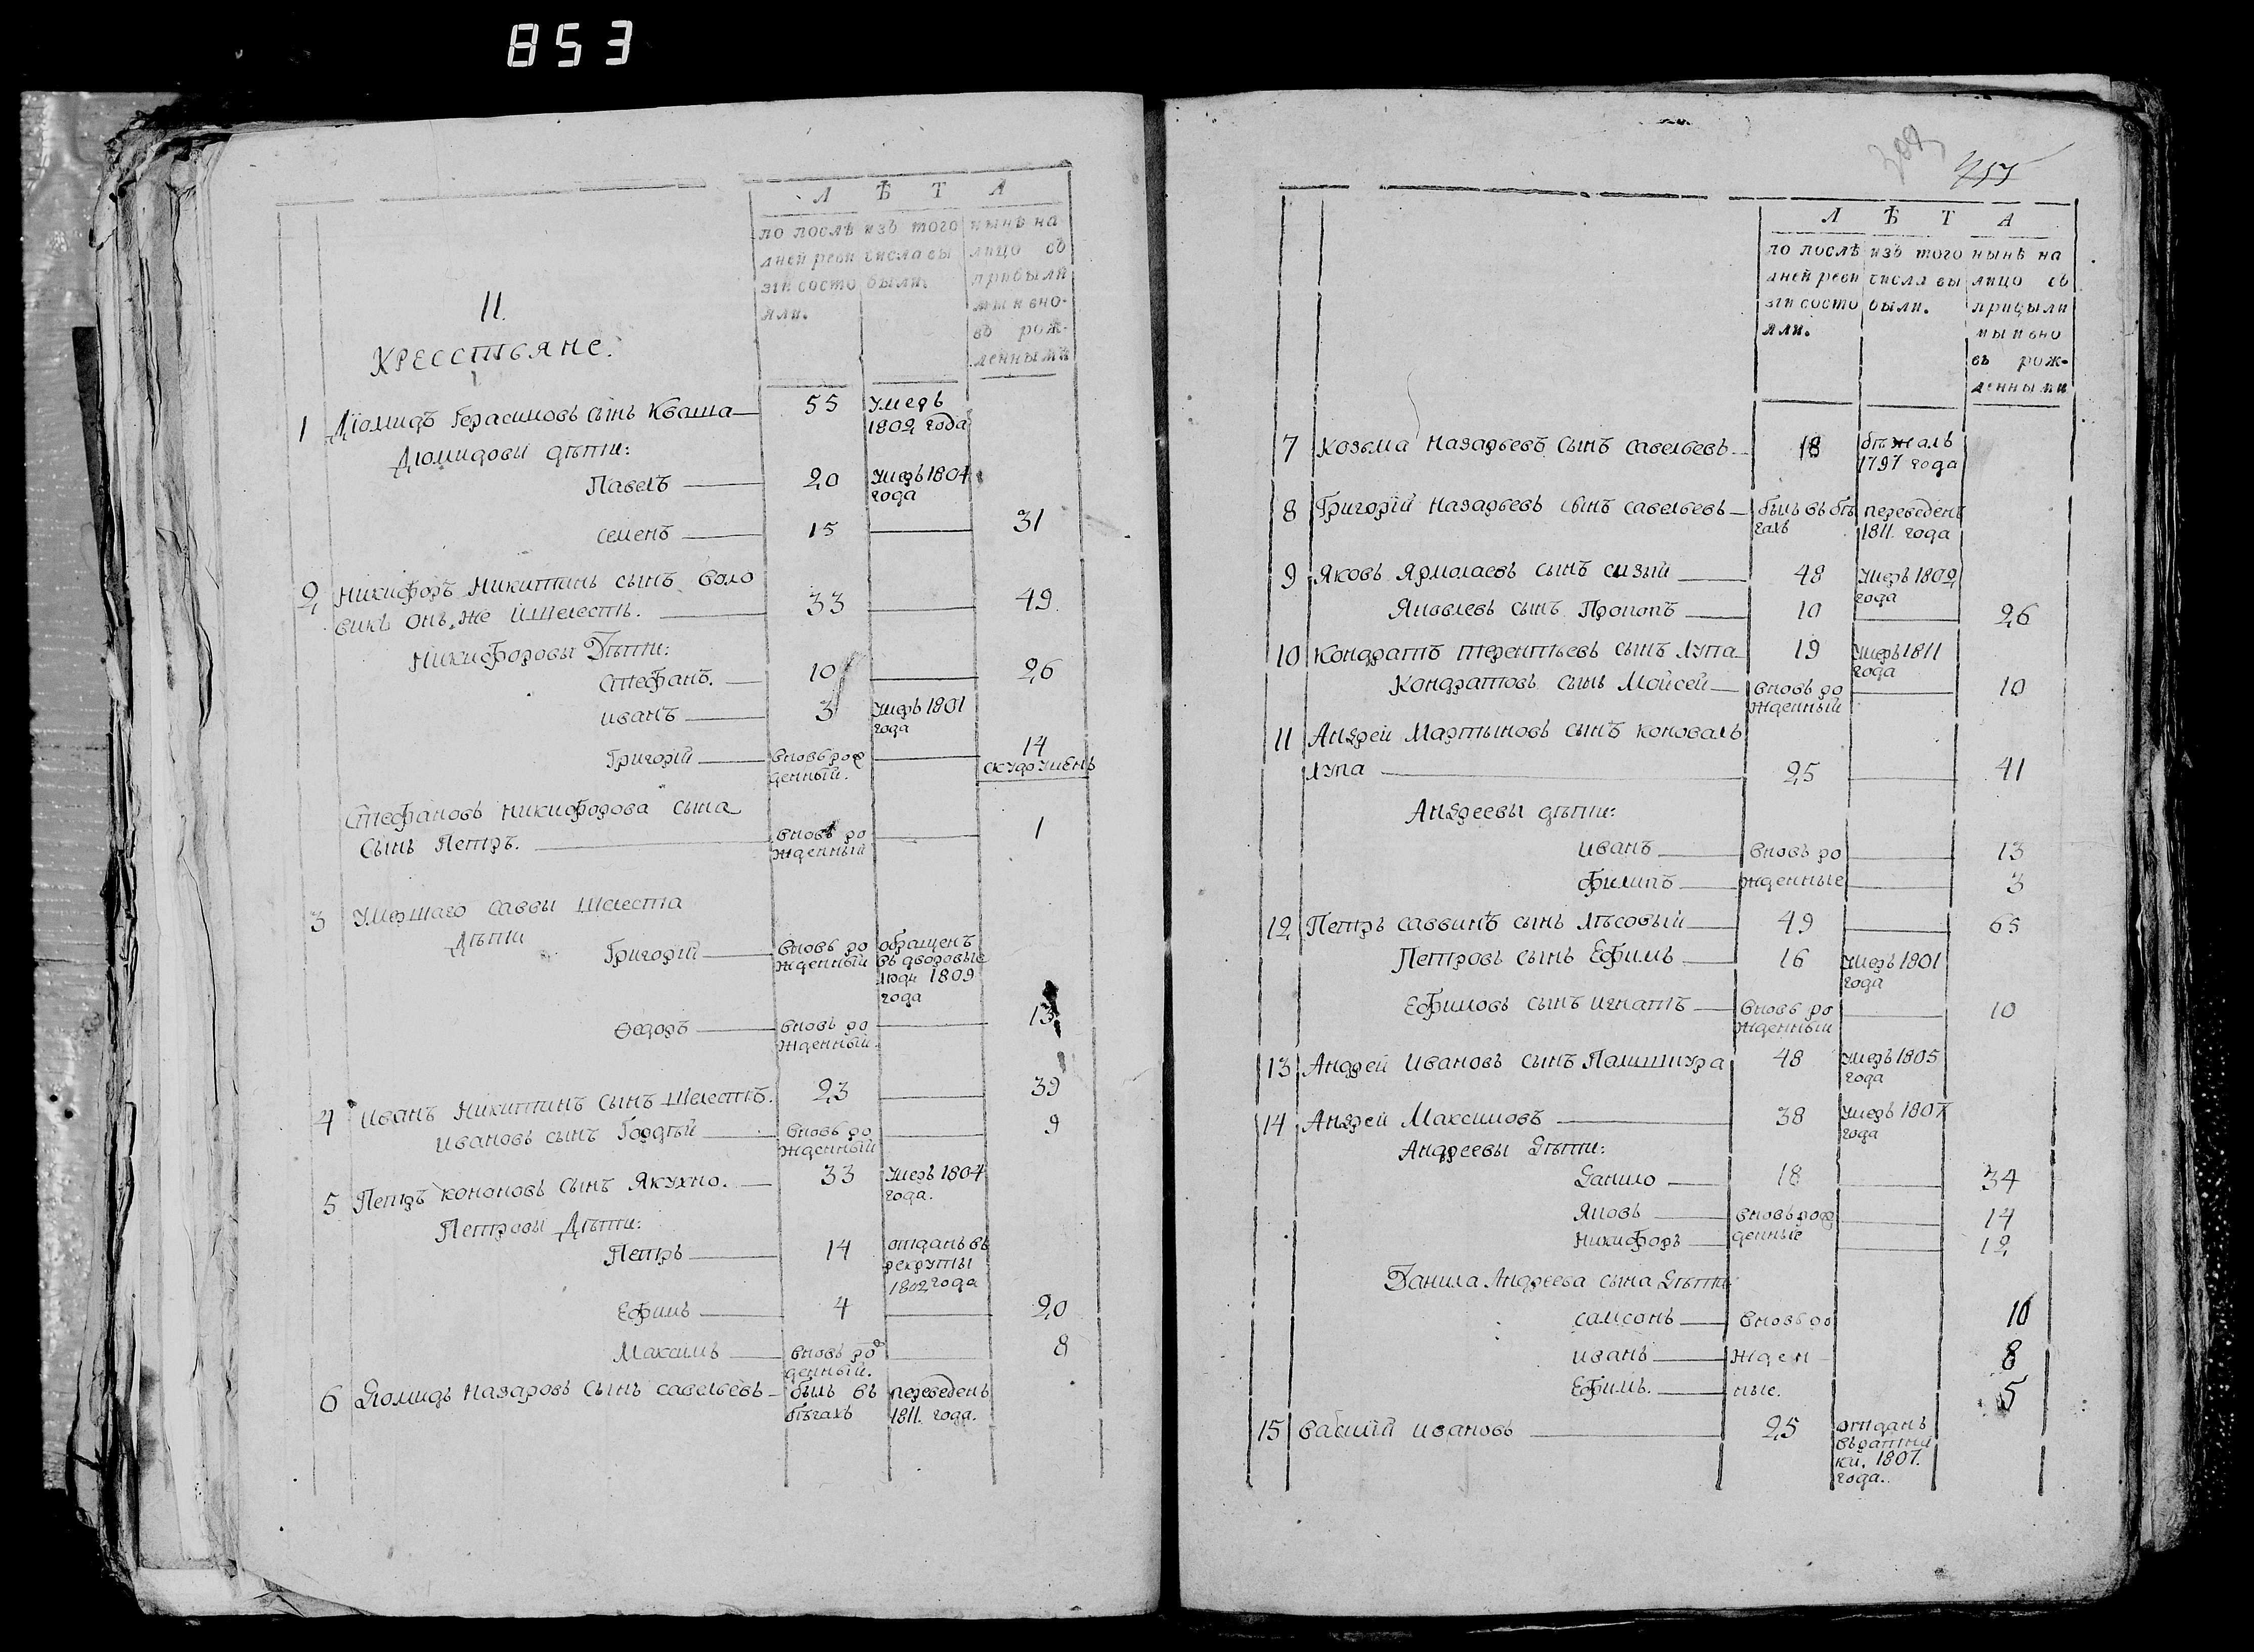 853
Л Ѣ Т А
по послѣ изъ того нынѣ на
дней реви числа вы лицо съ
зіи состо были. прибыли
яли. ми и вно-
въ рож-
денными
II.
Крестьяне.
1 Діомидъ Герасимовъ сынъ Кваша 55 умеръ
1802 года
Діомидовы дѣти:
Павелъ 20 умеръ 1804
года
семенъ 15 31
2 Никифоръ Никитинъ сынъ Воло
викъ онъ же Шелестъ. 33 49
Никифоровы Дѣти:
Стефанъ. 10 26
иванъ 3 умеръ 1801
года
Григорій вновь рож 14
денный.
Стефановъ Никифорова сына
Сынъ Петръ. вновь ро 1
жденный
3 Умершаго Саввы Шелеста
Дѣти
Григорій вновь ро обращенъ
жденный въ дворовые
люди 1809
года
Ѳедоръ вновь ро 13
жденный.
4 иванъ Никитинъ сынъ Шелестъ. 23 39
ивановъ сынъ Гордѣй вновь ро 9
жденный
5 Петръ Кононовъ сынъ Якухно. 33 умеръ 1804
года.
Петровы Дѣти:
Петръ 14 отданъ въ
рекруты
1802 года
Ефимъ 4 20
Максимъ вновь рож 8
денный.
6 Діомидъ Назаровъ сынъ савельевъ былъ въ переведенъ
бѣгахъ 1811. года.
455
Л Ѣ Т А
по послѣ изъ того нынѣ на
дней реви числа вы лицо съ
зіи состо были. прибыли
яли. ми и вно
въ рож-
денными
7 Козьма Назарьевъ сынъ савельевъ 18 бѣжалъ
1797 года
8 Григорій Назарьевъ сынъ савельевъ былъ въ бѣ переведенъ
гахъ 1811. года
9 Яковъ Ярмолаевъ сынъ сизый 48 умеръ 1802
года
Яковлевъ сынъ Прокопъ 10 26
10 Кондратъ терентьевъ сынъ Лупа 19 умеръ 1811
года
Кондратовъ сынъ Мойсей вновь ро 10
жденный
11 Андрей Мартыновъ сынъ коноваль
Лупа 25 41
Андреевы дѣти:
иванъ вновь ро 13
филипъ жденные 3
12 Петръ саввинъ сынъ Лѣсовый 49 65
Петровъ сынъ Ефимъ 16 умеръ 1801
года
Ефимовъ сынъ игнатъ вновь ро 10
жденный
13 Андрей Ивановъ сынъ 48 умеръ 1805
года
14 Андрей Максимовъ 38 умеръ 1807
года
Андреевы Дѣти:
Данило 18 34
Яковъ вновь рож 14
Никифоръ денные 12
Данила Андреева сына Дѣти:
самсонъ вновь ро 10
иванъ жден 8
Ефимъ. ные. 5
15 василій ивановъ 25 отданъ
въ ратни
ки. 1807.
года.